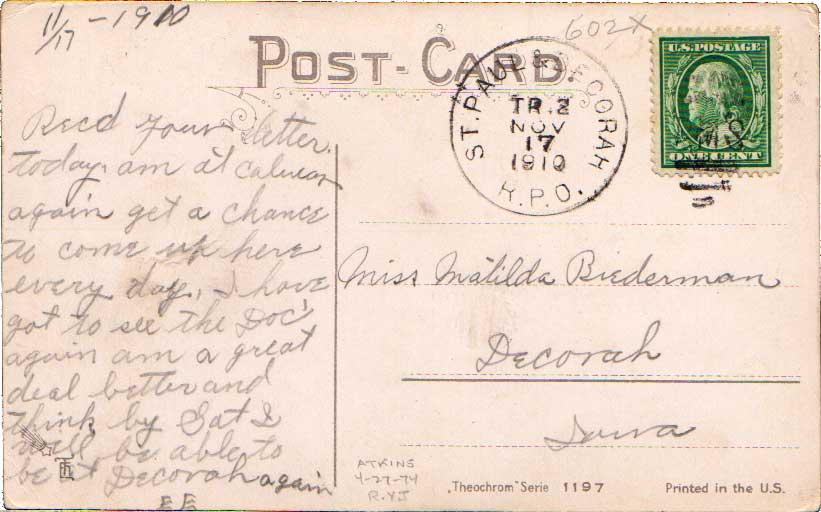 11/17 - 1910
602X
POST-CARD
U.S. POSTAGE
ONE CENT
ST. PAUL & DECORAH
TR. 2
NOV
17
1910
R.P.O.
Recd your letter
today. am at Calmar
again get a chance
to come up here
every day, I have
got to see the Doc
again am a great
deal better and
think by Sat I
will be able to
be at Decorah again
EE
Miss Matilda Biederman
Decorah
Iowa
ATKINS
4-27-74
R.YJ
"Theochrom" Serie 1197
Printed in the U.S.